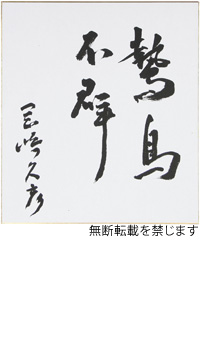 鷙鳥
不群
岡崎久彦
無断転載を禁じます